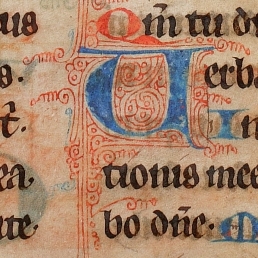 uus
s.
t̃.
ra
te.
Qom̃ tu d
Verba
tionis mee
bo dñe.